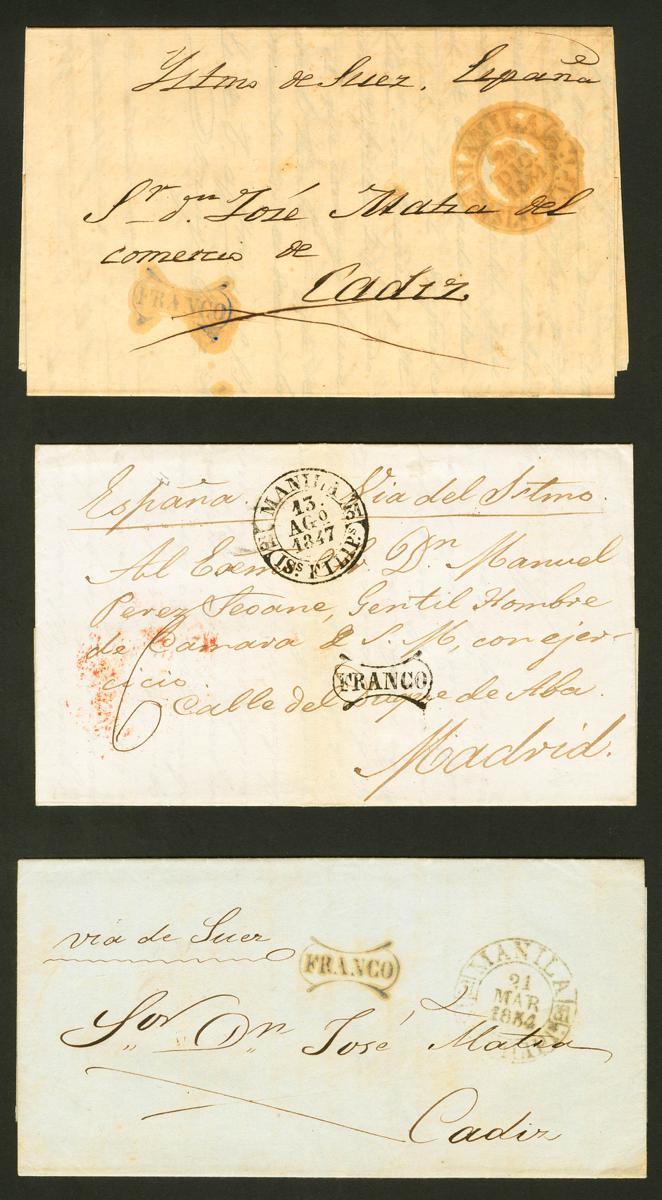 Ystmo de Suez. España
MANILA
28
DIC
1851
Sr. dn. José Matia del
comercio de
Cadiz
FRANCO
España. Via del Istmo.
MANILA
13
AGO
1847
ISs. FILIPs.
Al Exmo. Dn. Manuel
Perez Seoane, Gentil Hombre
de Camara S. M, con ejer-
cicio.
FRANCO
Calle del Duque de Alba.
Madrid.
via de Suez
FRANCO
MANILA
21
MAR
1854
Sor. Dn. José Matia
Cadiz